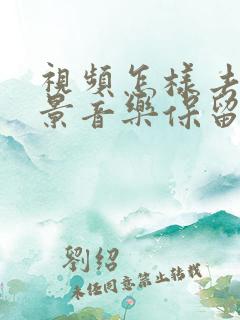 視頻怎樣去
景音樂保留
劉紹
未經同意禁止轉載